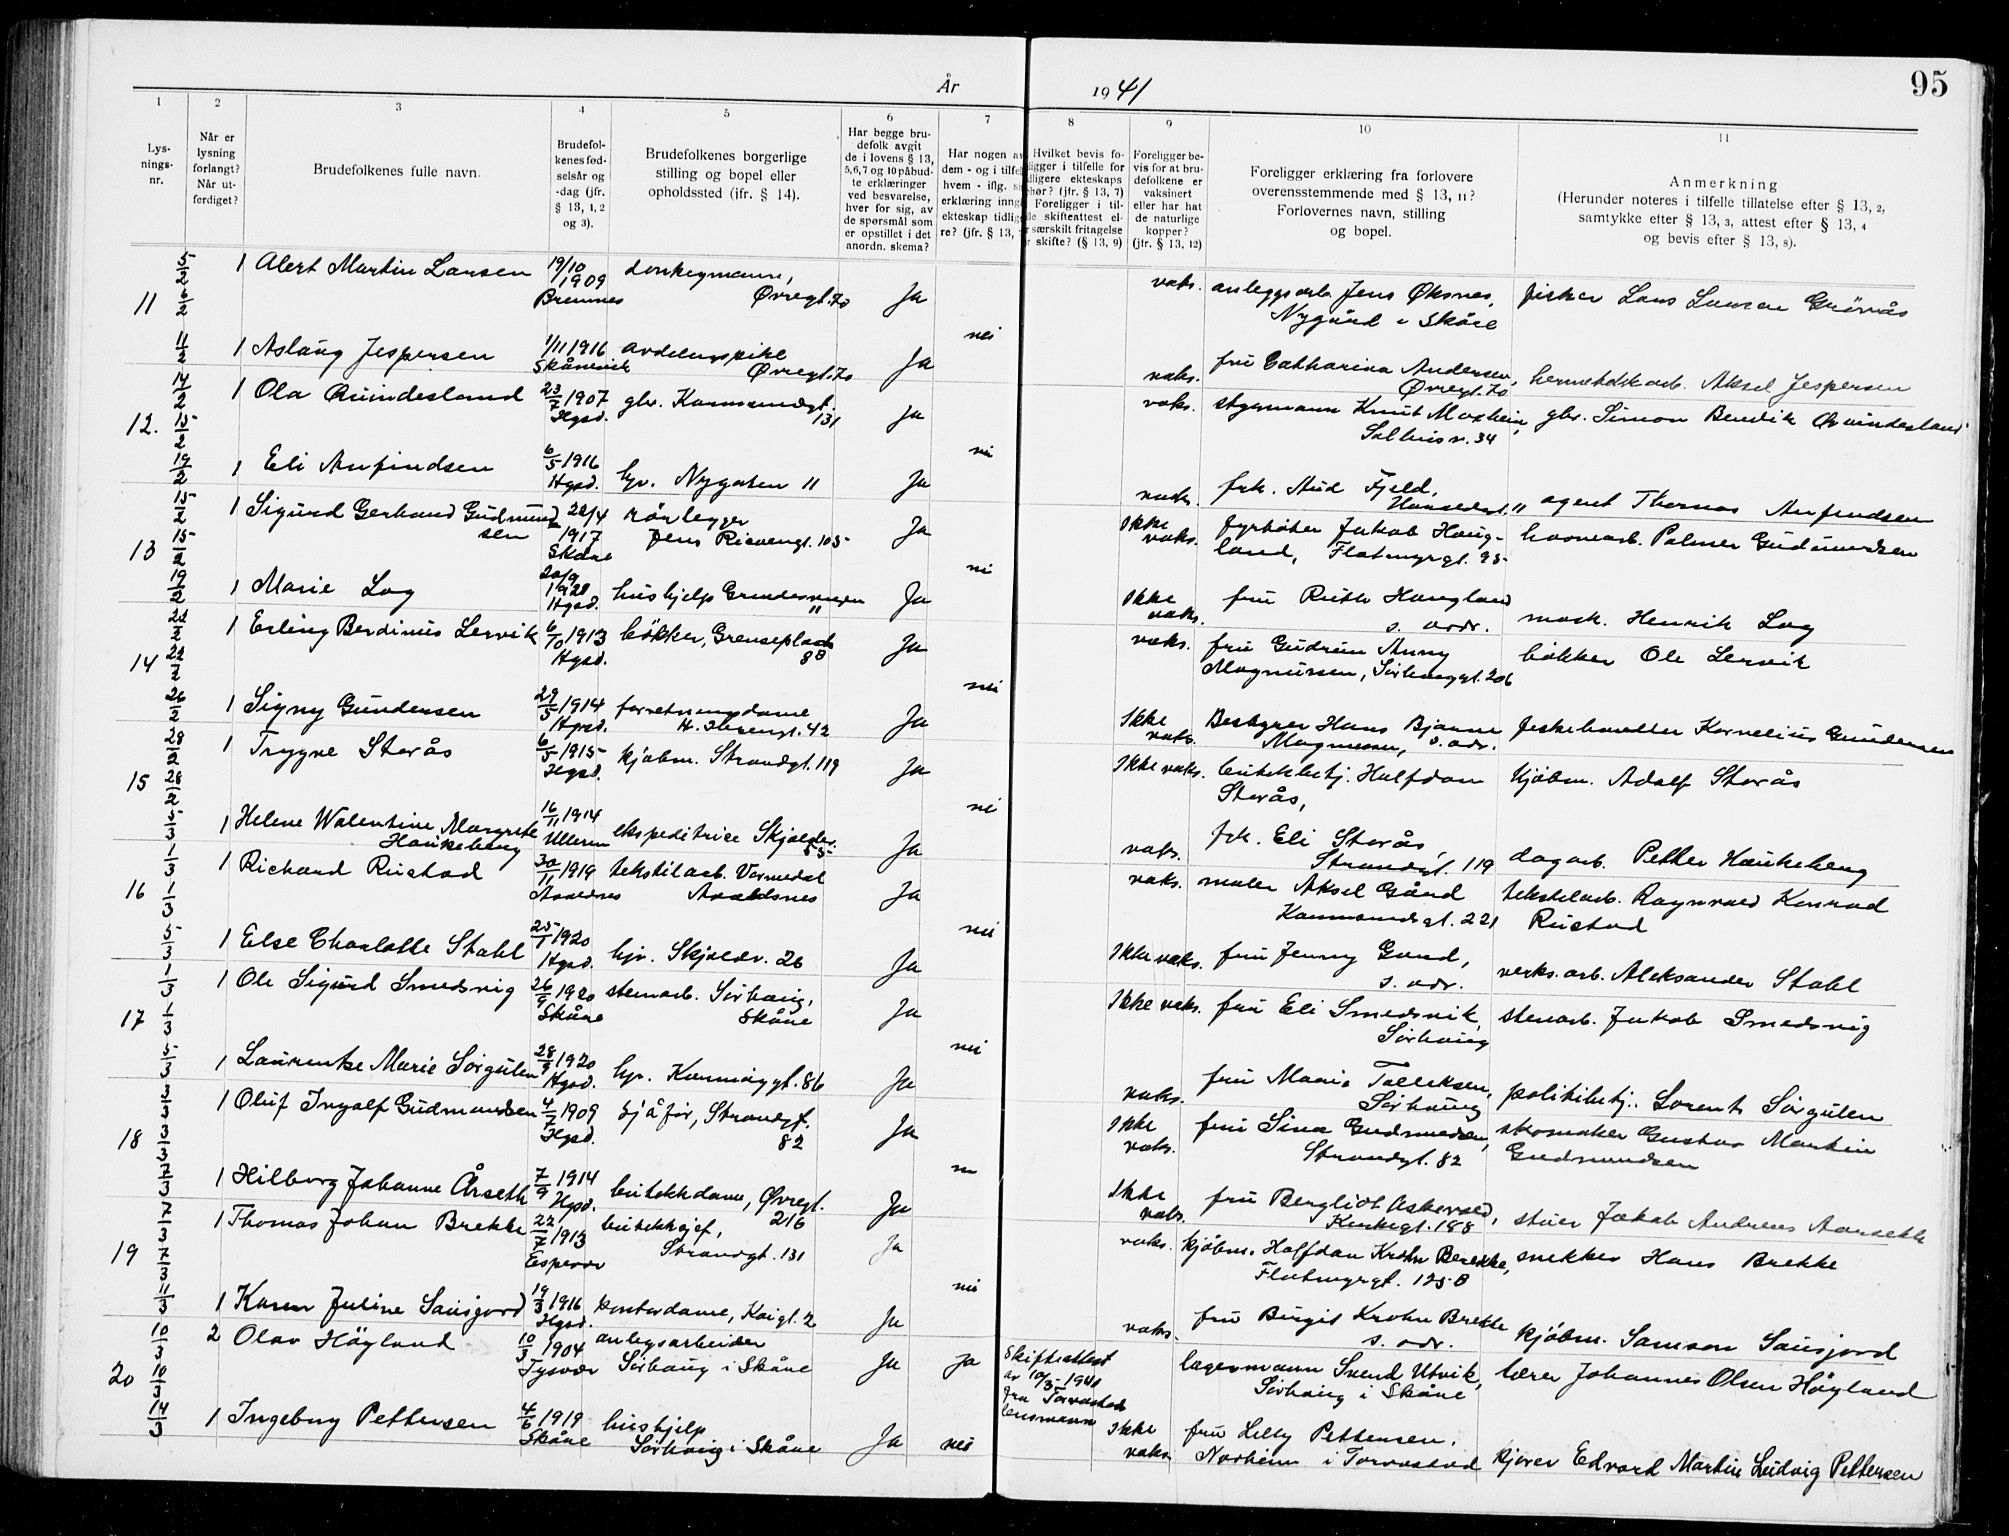 År 1941
95
1 2 3 4 5 6 7 8 9 10 11
Lysningsnr.
Når er lysning forlangt? Når utferdiget?
Brudefolkenes fulle navn.
Brudefolkenes fødselsår og -dag (jfr. § 13, 1, 2 og 3).
Brudefolkenes borgerlige stilling og bopel eller opholdssted (ifr. § 14).
Har begge brudefolk avgit de i lovens § 13, 5, 6, 7 og 10 påbudte erklæringer ved besvarelse, hver for sig, av de spørsmål som er opstillet i det anordn. skema?
Foreligger bevis for at brudefolkene er vaksinert eller har hat de naturlige kopper? (jfr. § 13, 12)
Foreligger erklæring fra forlovere overensstemmende med § 13, 11? Forlovernes navn, stilling og bopel.
Anmerkning
(Herunder noteres i tilfelle tillatelse efter § 13, 2, samtykke efter § 13, 3, attest efter § 13, 4 og bevis efter § 13, 8).
11 5/2 6/2 1 Alert Martin Larsen 19/10 1909 Bremnes donkeymann, Øvregt. 70 Ja vaks. anleggsarb. Jens Øksnes, Nygård i Skåre fisker Lars Larsen Grönås
11/2 1 Aslaug Jespersen 1/11 1916 Skånevik avdelingspike Øvregt. 70 Ja nei vaks. fru Catharina Andersen, Øvregt. 70 hermetikkarb. Aksel Jespersen
12. 14/2 15/2 1 Ola Quindesland 23/7 1907 Hgsd. gbr. Karmsundgt. 131 Ja vaks. styrmann Knut Moxheim, Salhusv. 34 gbr. Simon Bendik Qvindesland
19/2 1 Eli Anfindsen 6/5 1916 Hgsd. hjv. Nygaten 11 Ja nei vaks. frk. Aud Fjeld, 11 agent Thomas Anfindsen
13 15/2 15/2 1 Sigurd Gerhard Gudmundsen 22/4 1917 Skåre rörlegger Jens Risøengt. 105 Ja Ikke vaks. fyrböter Jakob Haugland, Flotmyrgt. 95 havnearb. Palmer Gudmundsen
19/2 1 Marie Log 20/9 1920 Hgsd. hushjelp 11 Ja nei Ikke vaks. fru Ruth Haugland s. adr. mask. Henrik Log
14 22/2 22/2 1 Erling Berdinius Lervik 6/10 1913 Hgsd. bökker, 88 Ja vaks. fru Gudrun Anny Magnussen, Sörhauggt. 206 bökker Ole Lervik
26/2 1 Signy Gundersen 29/5 1914 Hgsd. forretningsdame H. Ibsengt. 42 Ja nei Ikke vaks. Bestyrer Hans Bjarne Magnussen, s. adr. fiskehandler Kornelius Gundersen
15 28/2 28/2 1 Trygve Storås 6/5 1915 Hgsd. kjøbm. Strandgt. 119 Ja Ikke vaks. butikkbetj. Halfdan Storås, kjöbm. Adolf Storås
5/3 1 Helene Walentine Margrete Haukeberg 16/11 1914 ekspeditrise Skjoldav. 55 Ja nei vaks. frk. Eli Storås, Strandgt. 119 dagarb. Petter Haukeberg
16 1/3 1/3 1 Richard Rustad 30/11 1919 tekstilarb. Vormedal Avaldsnes Ja vaks. maler Aksel Gård Karmsundgt. 221 tekstilarb. Ragnvald Konrad Rustad
5/3 1 Else Charlotte Stahl 25/1 1920 Hgsd. hjv. Skjoldv. 26 Ja nei Ikke vaks. fru Jenny Gard, s. adr. verks. arb. Aleksander Stahl
17 1/3 1/3 1 Ole Sigurd Smedsvig 26/9 1920 Skåre stenarb. Sörhaug, Skåre Ja Ikke vaks. fru Eli Smedsvik, Sörhaug stenarb. Jakob Smedsvig
5/3 1 Laurentse Marie Sörgulen 28/9 1920 Hgsd. hjv. Karmsundgt. 86 Ja nei vaks. fru Marie Tolleksen, Sörhaug politibetj. Lorents Sörgulen
18 3/3 3/3 1 Oluf Ingolf Gudmundsen 4/7 1909 Hgsd. sjåför, Strandgt. 82 Ja Ikke vaks. fru Sina Gudmundsen, Strandgt. 82 skomaker Gustav Martin Gudmundsen
7/3 1 Hilborg Johanne Årseth 7/9 1914 Hgsd. butikkdame, Øvregt. 216 Ja nei Ikke vaks. fru Berglidt Kirkegt. 188 stuer Jakob Andreas Aarseth
19 7/3 7/3 1 Thomas Johan Brekke 22/7 1913 Espevær butikksjef, Strandgt. 131 Ja vaks. kjöbm. Halfdan Krohn Brekke, Flotmyrgt. 125 B snekker Hans Brekke
11/3 1 Karen Juline Sausjord 19/3 1916 Hgsd. kontordame, Kaigt. 2 Ja nei vaks. fru Birgit Krohn Brekke s. adr. kjöbm. Samson Sausjord
20 10/3 10/3 2 Olav Höyland 10/3 1904 Tysvær anlegsarbeider Sörhaug i Skåre Ja ja Skifteattest av 10/3-1941 fra Torvastad lensmann lagermann Svend Utvik, Sörhaug i Skåre lærer Johannes Olsen Höyland
14/3 1 Ingeborg Pettersen 4/6 1919 Skåre hushjelp Sörhaug i Skåre Ja nei Ikke vaks. fru Lilly Pettersen, Norheim i Torvastad kjörer Edvard Martin Ludvig Pettersen